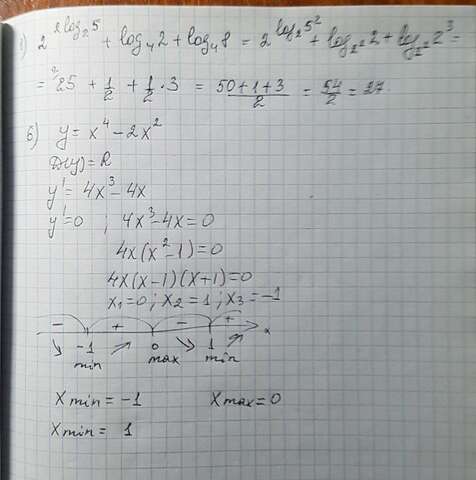 1) 2^(2log₂5) + log₄2 + log₄8 = 2^(log₂5²) + log_(2²)2 + log_(2²)2³ =
= 25 + 1/2 + 1/2 · 3 = (50+1+3)/2 = 54/2 = 27.
6) y = x⁴ - 2x²
D(y) = R
y' = 4x³ - 4x
y' = 0 ; 4x³ - 4x = 0
4x(x² - 1) = 0
4x(x - 1)(x + 1) = 0
x₁ = 0 ; x₂ = 1 ; x₃ = -1
- + - +
↘ -1 ↗ 0 ↘ 1 ↗ x
min max min
Xmin = -1 Xmax = 0
Xmin = 1